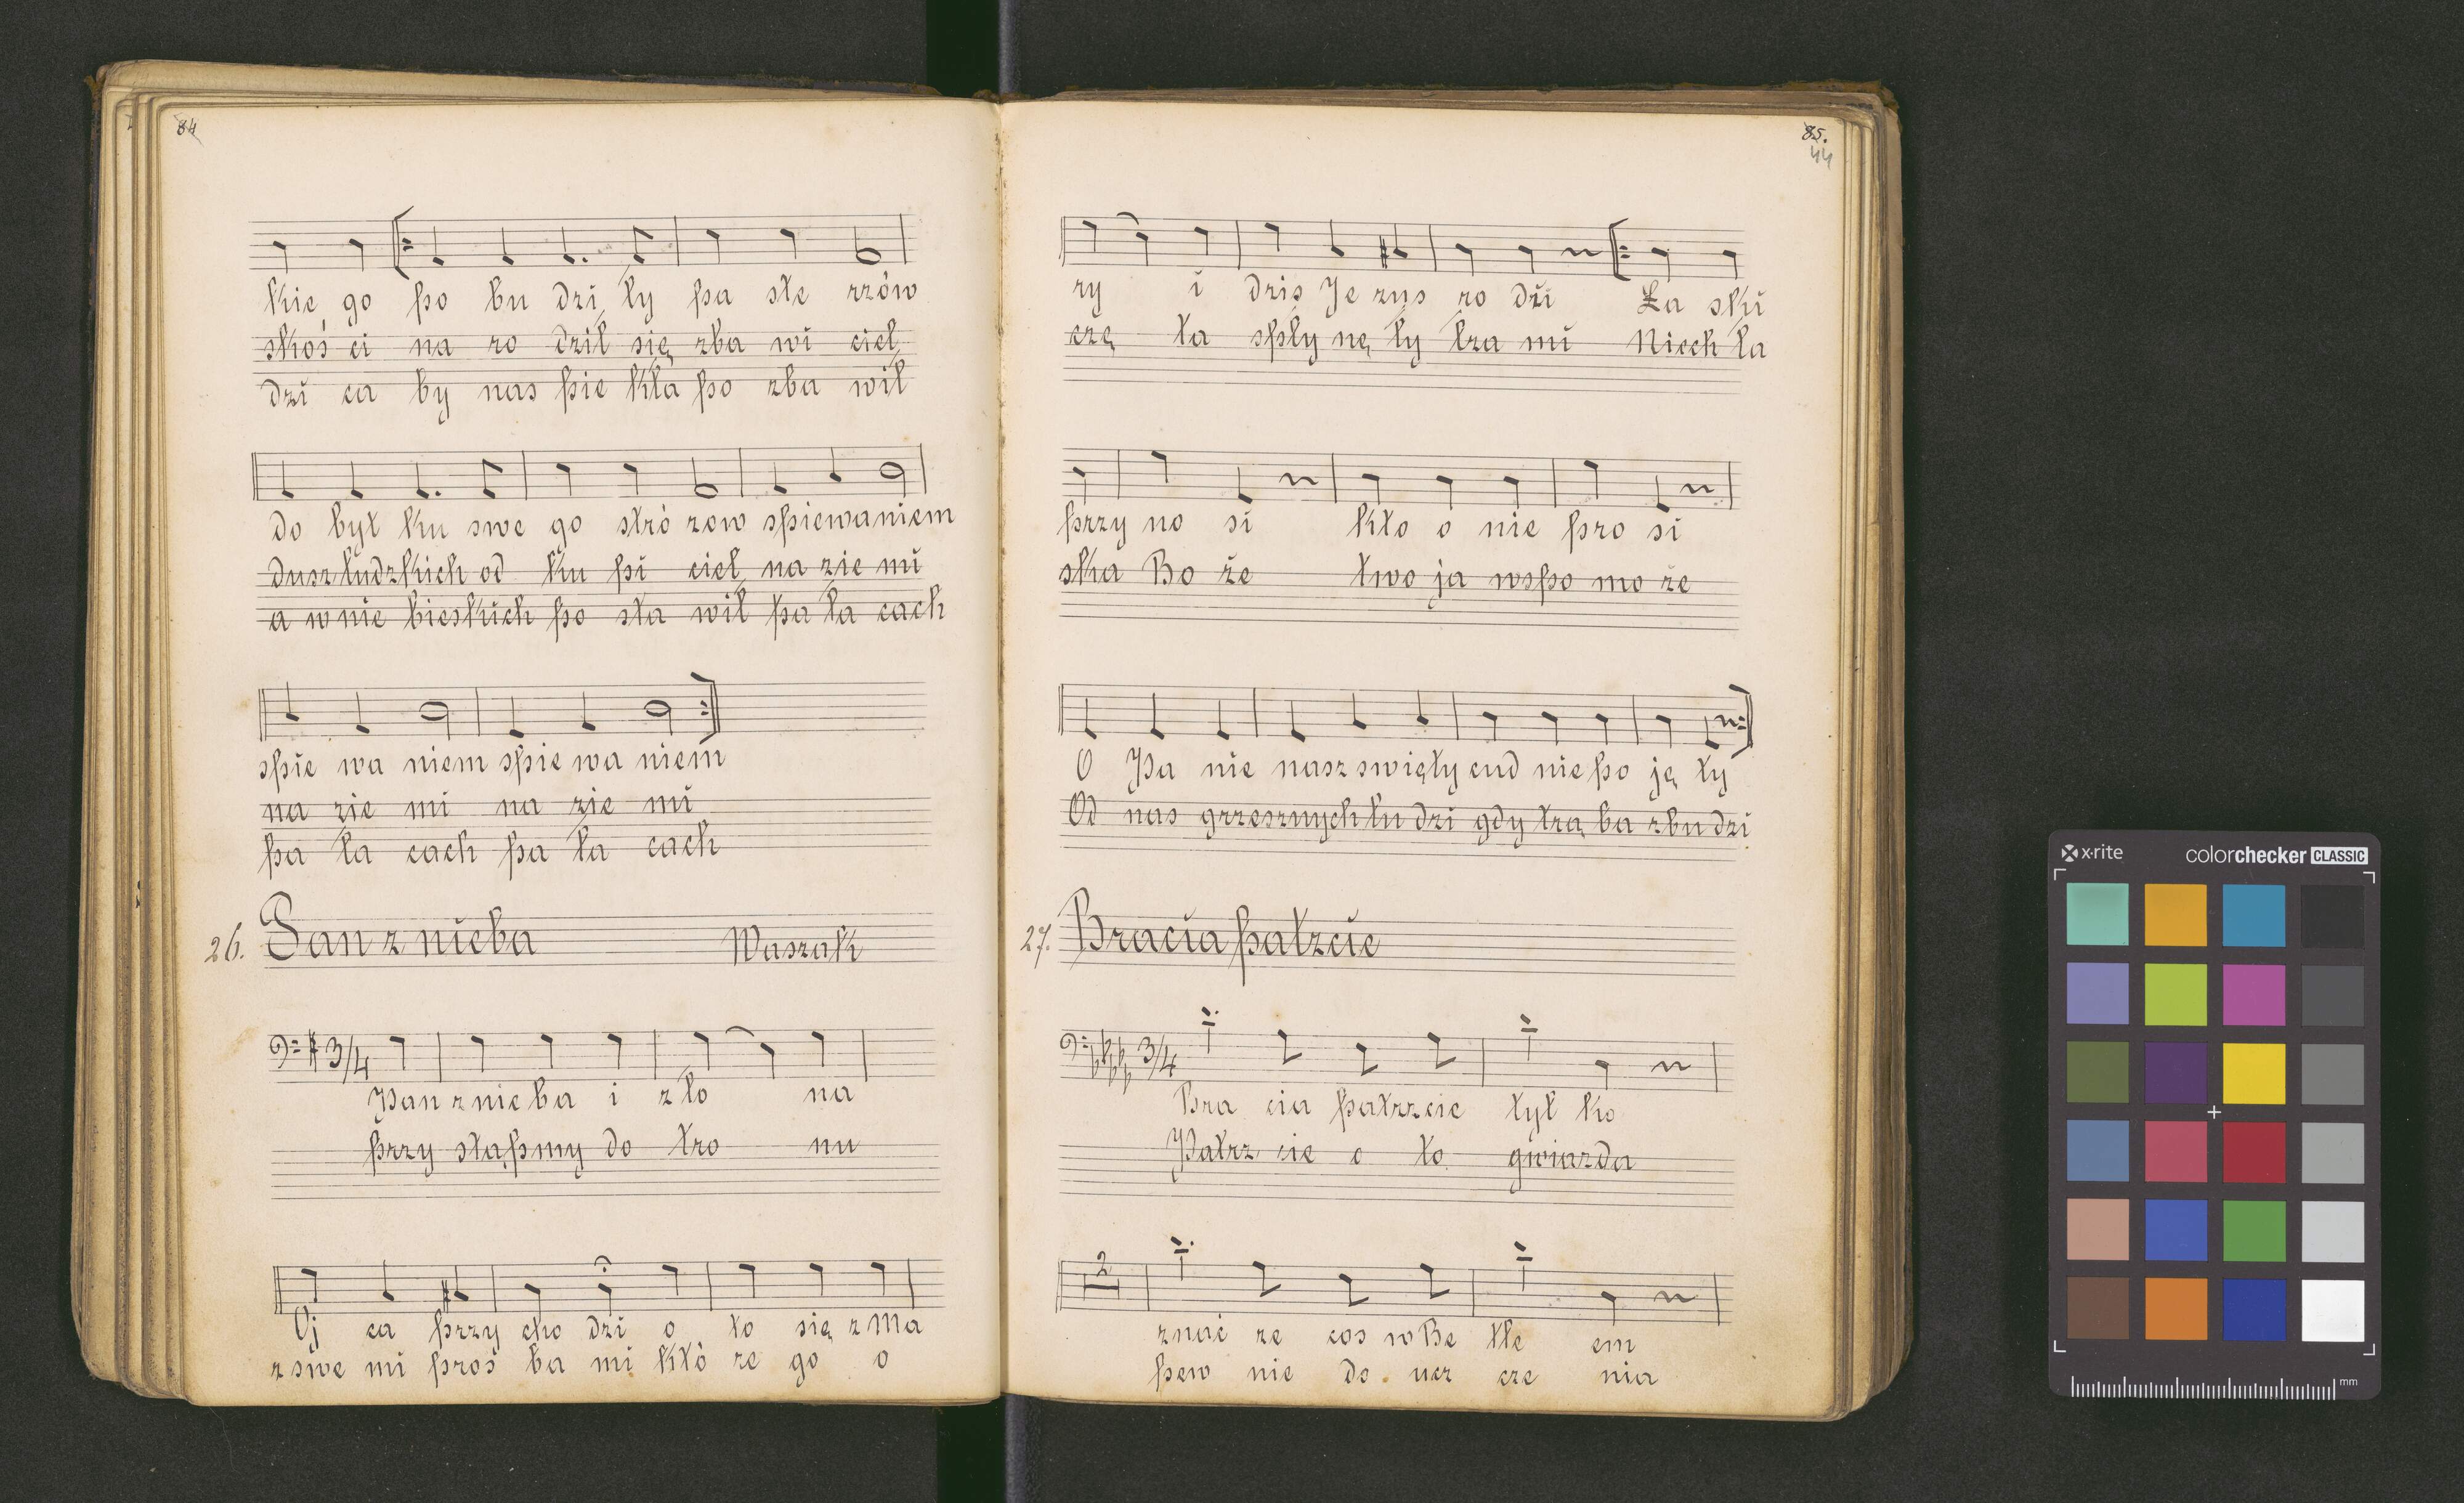 84
kie go po bu dzi ły pa ste rzów
skoś ci na ro dził się zba wi ciel
dzi ca by nas pie kła po zba wił
do byt ku swe go stró zow spiewaniem
dusz ludzkich od ku pi ciel na zie mi
a w nie bieskich po sta wił pa ła cach
spie wa niem spie wa niem
na zie mi na zie mi
pa ła cach pa ła cach
26. Pan z nieba Waszak
3/4
Pan z nie ba i z ło na
przy stąpmy do tro nu
Oj ca przy cho dzi o to się z Ma
z swe mi proś ba mi któ re go o
85.
44
ry i dziś Je zus ro dzi Ła ski
czę ta spły nę ły łza mi Niech ła
przy no si kto o nie pro si
ska Bo że two ja wspo mo że
O Pa nie nasz swięty cud nie po ję ty
Od nas grzesznych lu dzi gdy trą ba zbu dzi
27. Bracia patzcie
3/4
Bra cia patrzcie tyl ko
Patrz cie o to gwiazda
2
znać ze cos w Be tle em
pew nie do ucz cze nia
x·rite colorchecker CLASSIC
mm